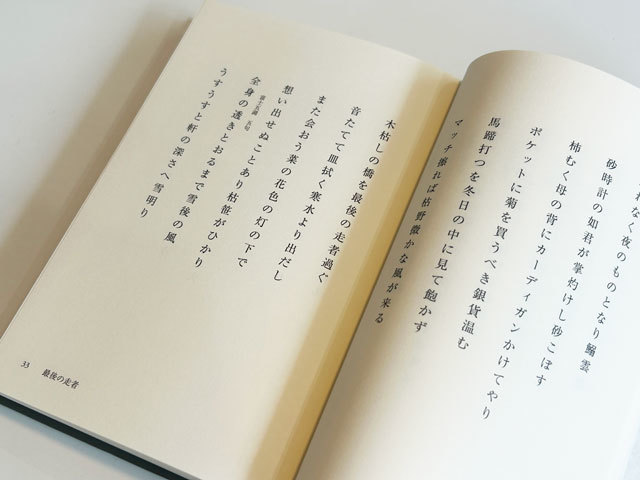 れなく夜のものとなり鰯雲
砂時計の如君が掌灼けし砂こぼす
柿むく母の背にカーディガンかけてやり
ポケットに菊を買うべき銀貨温む
馬蹄打つを冬日の中に見て飽かず
マッチ擦れば枯野微かな風が来る
木枯しの橋を最後の走者過ぐ
音たてて皿拭く寒水より出だし
また会おう菜の花色の灯の下で
想い出せぬことあり枯笹がひかり
富士五湖 五句
全身の透きとおるまで雪後の風
うすうすと軒の深さへ雪明り
33 最後の走者